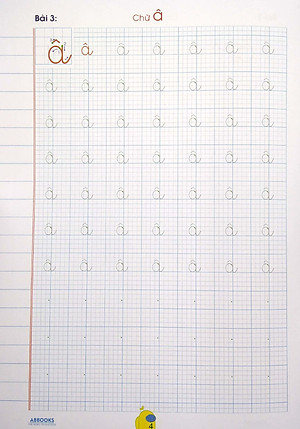 Bài 3: Chữ â
â â â â â â â
â â â â â â â
â â â â â â â
â â â â â â â
â â â â â â â
â â â â â â â
â â â â â â â
ARBOOKS
4